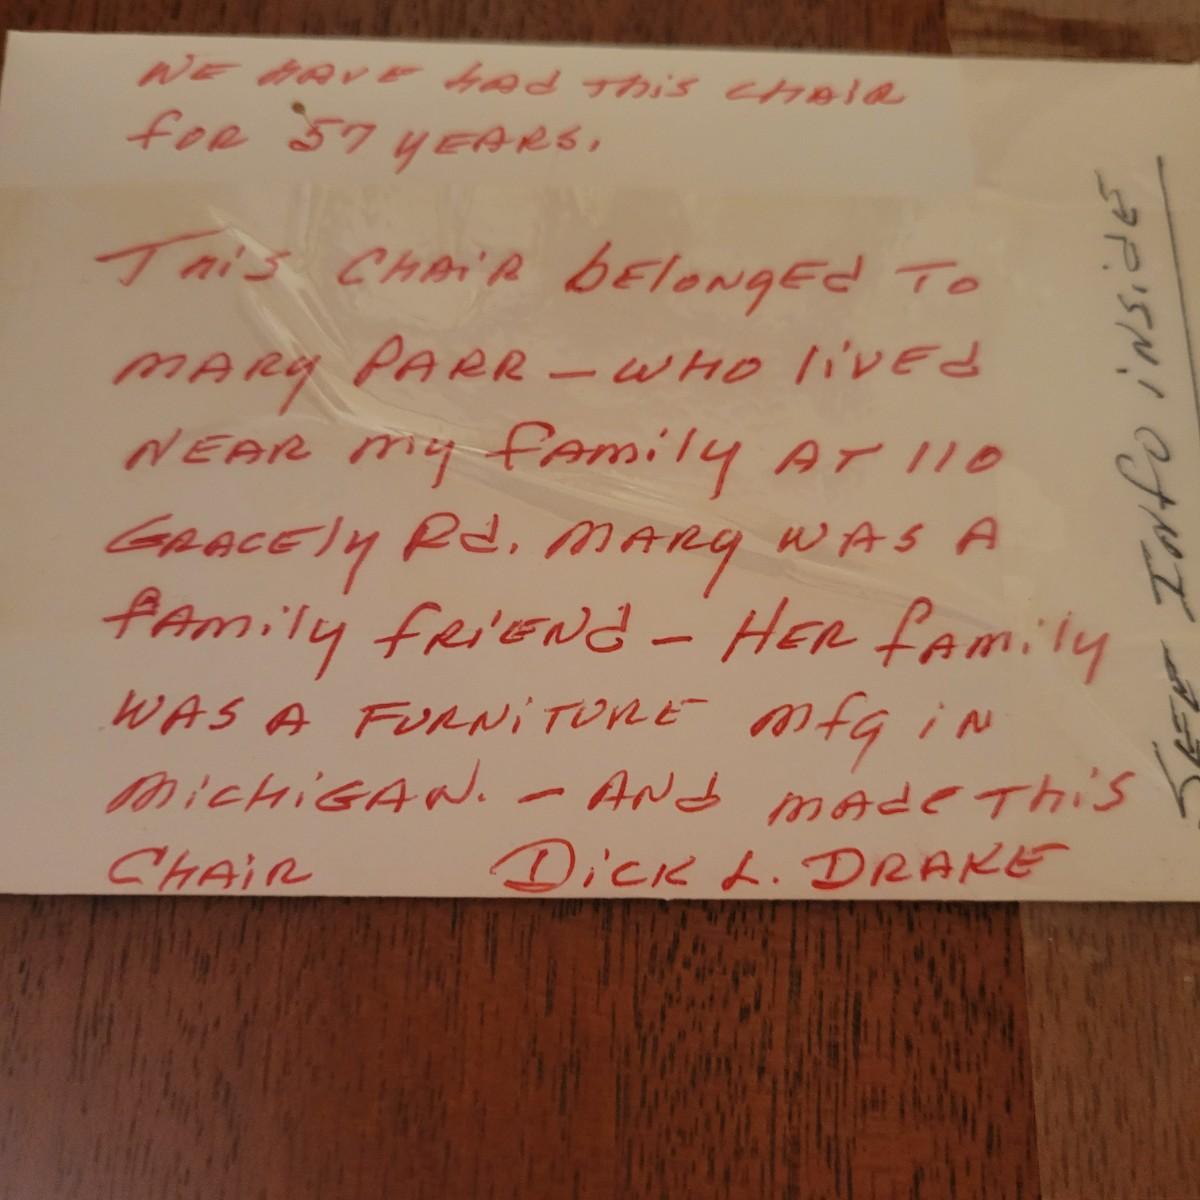 WE HAVE HAd THiS CHAIR
foR 57 yEARS.
THiS CHAiR bElONgEd TO
MARy PARR – WHO liVEd
NEAR my fAmily AT 110
GRACEly Rd. MARy WAS A
fAmily fRiENd – HER fAmily
WAS A FURNiTURE mfg iN
MiCHiGAN. – ANd mAde THiS
CHAiR DiCK L. DRAKE
SEE INfo iNSidE